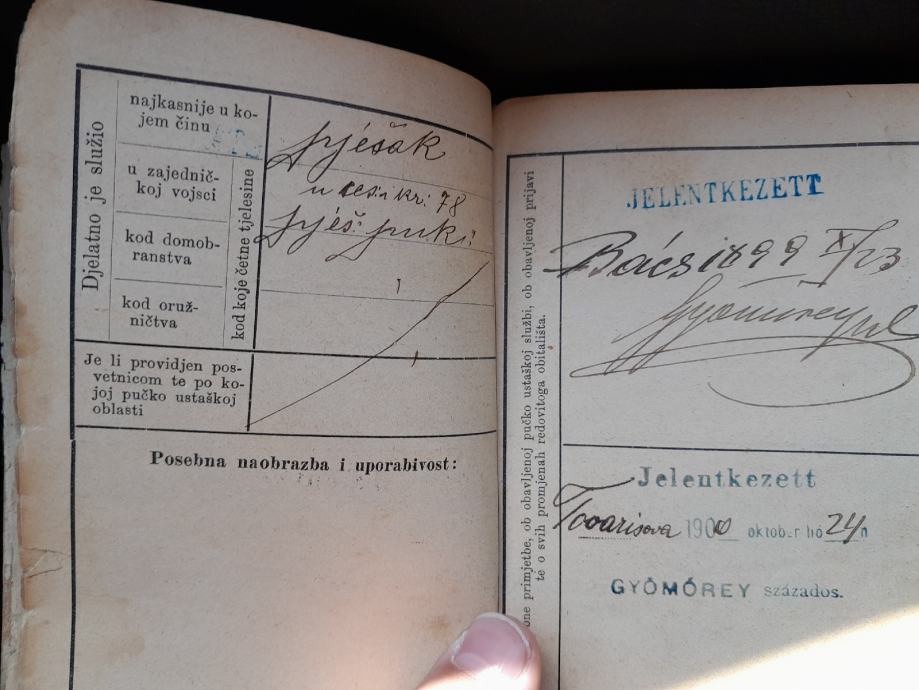 Djelatno je služio
najkasnije u ko-
jem činu
u zajednič-
koj vojsci
kod domob-
ranstva
kod oruž-
ničtva
kod koje četne tjelesine
pješak
u ces. i kr: 78
pješ: puk:
Je li providjen pos-
vetnicom te po ko-
joj pučko ustaškoj
oblasti
Posebna naobrazba i uporabivost:
primjetbe, ob obavljenoj pučko ustaškoj službi, ob obavljenoj prijavi
te o svih promjenah redovitoga obitališta.
JELENTKEZETT
Bács 1899 X/23
Gyömörey
Jelentkezett
Tovarisova 1900 október hó 24n
GYÖMÖREY százados.